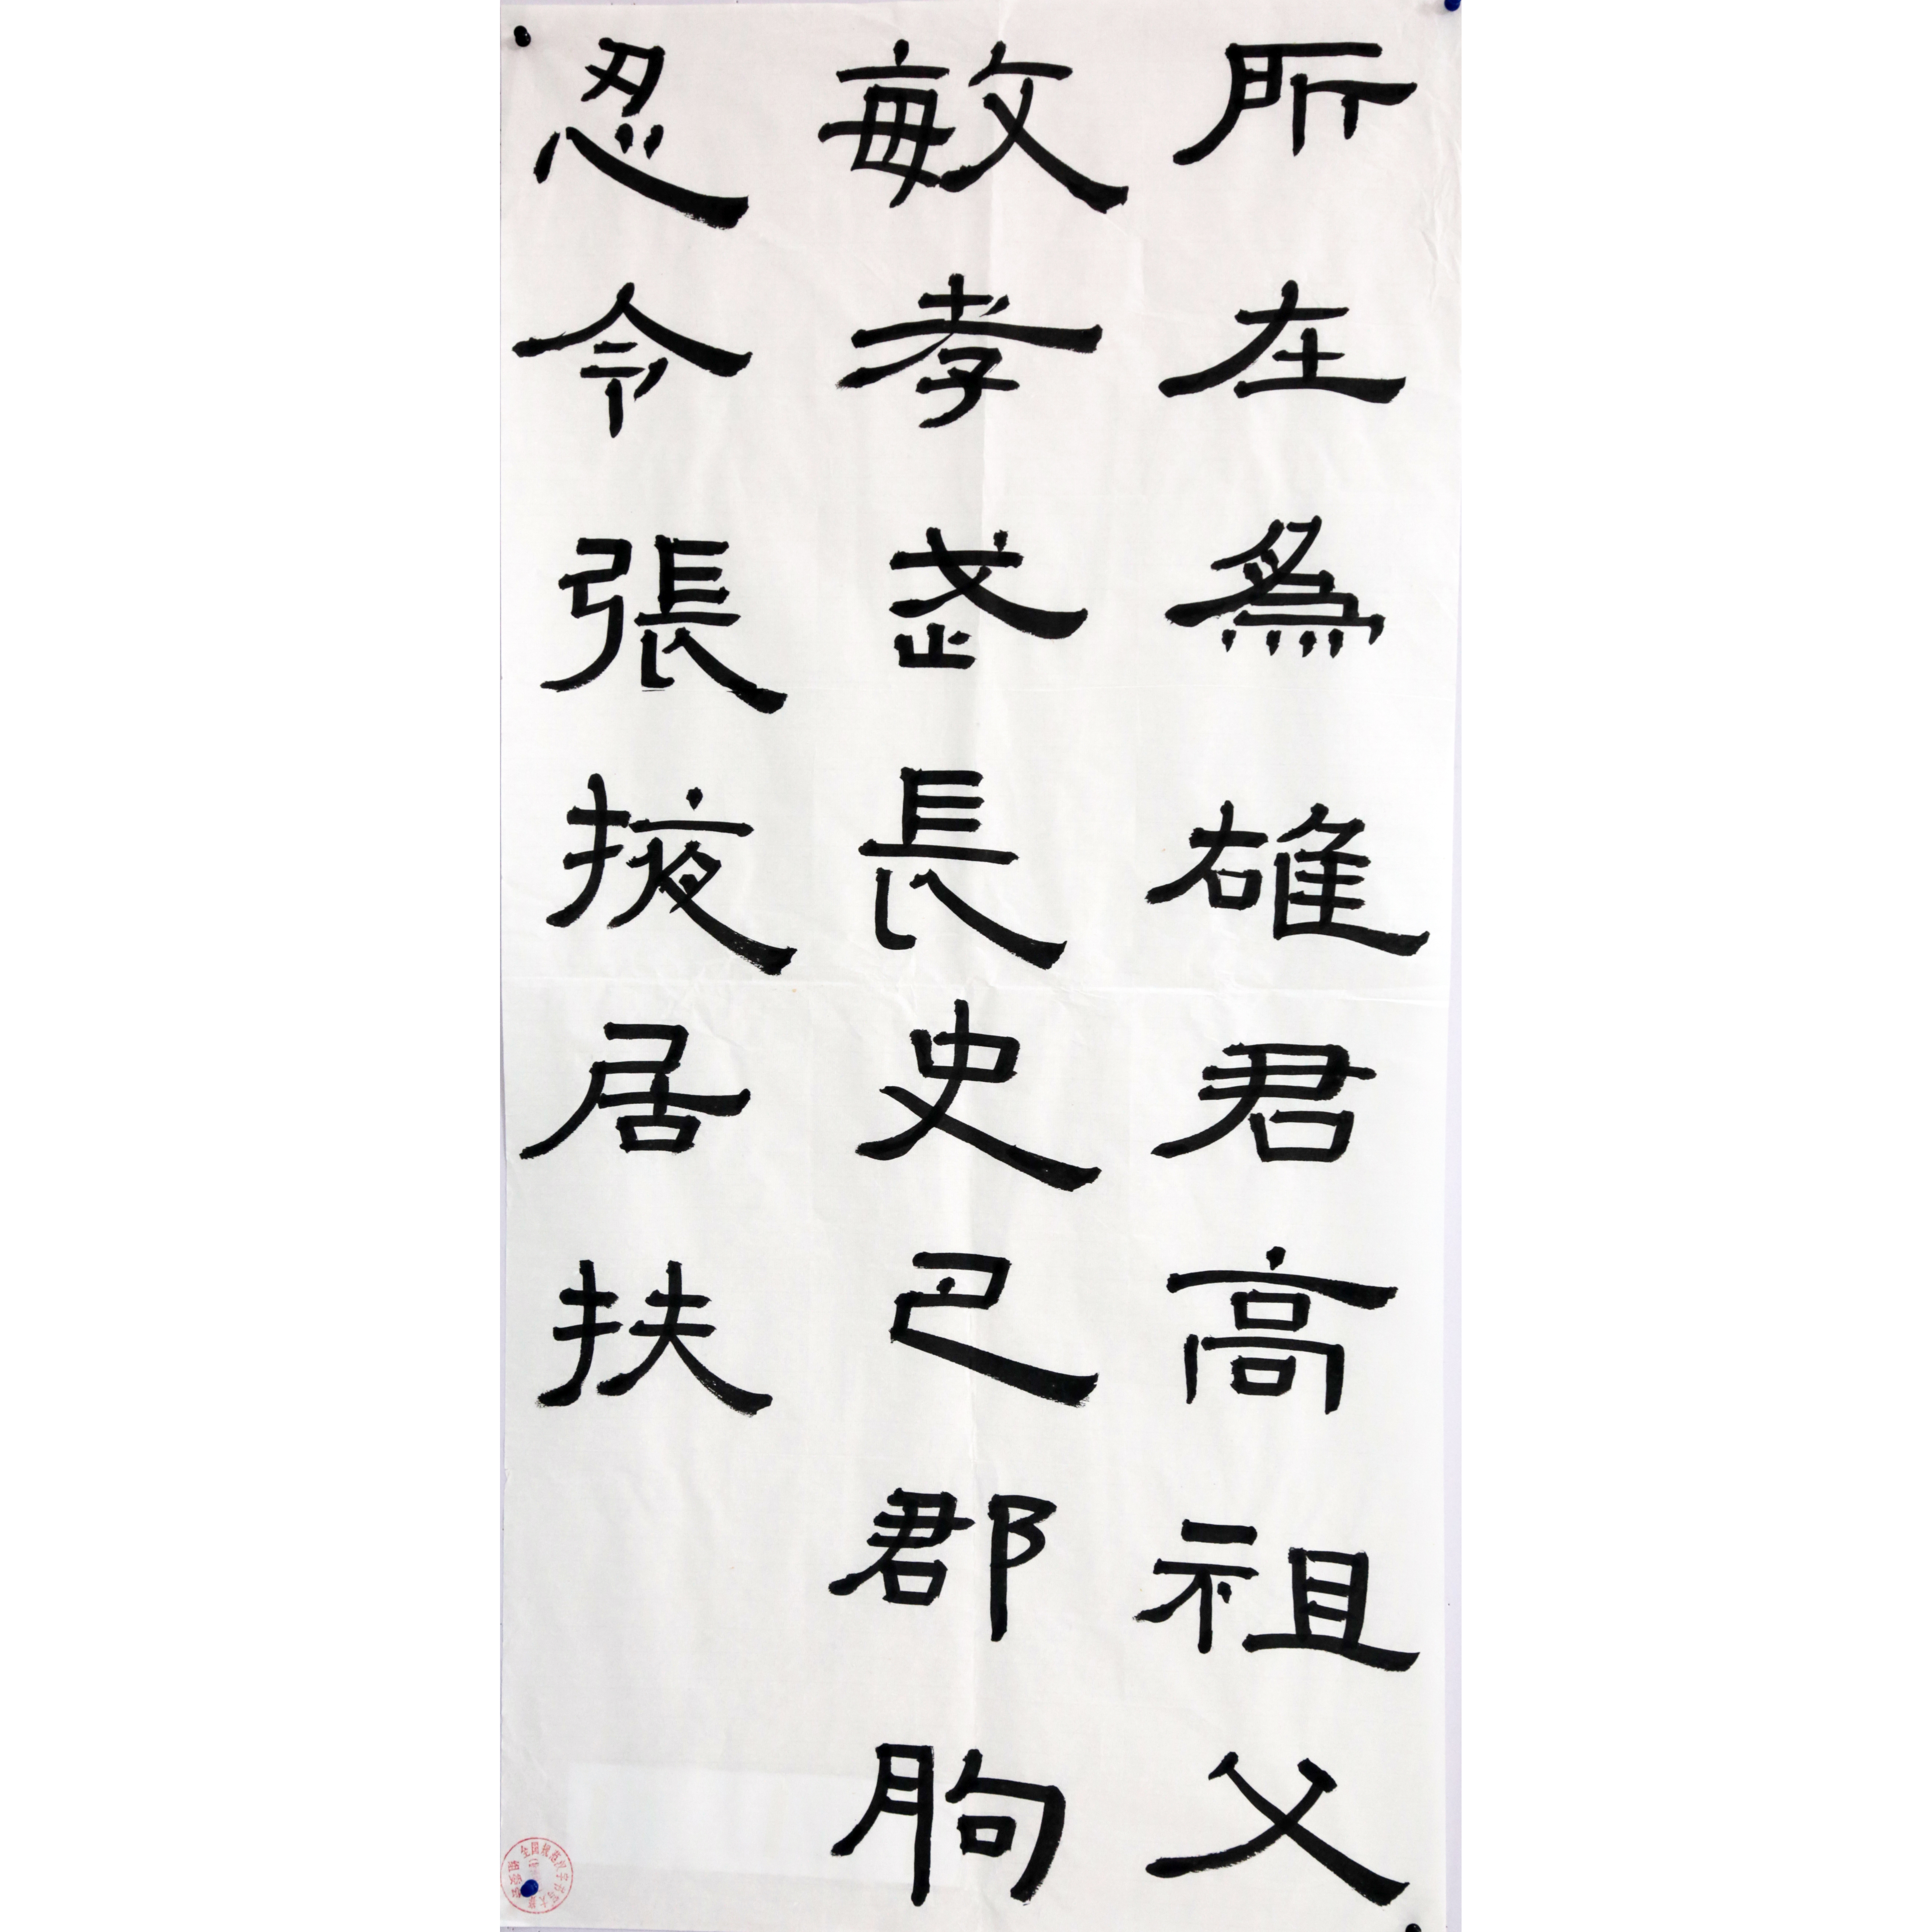 所在為雄君高祖父
敏孝武長史巴郡朐
忍令張掖居扶